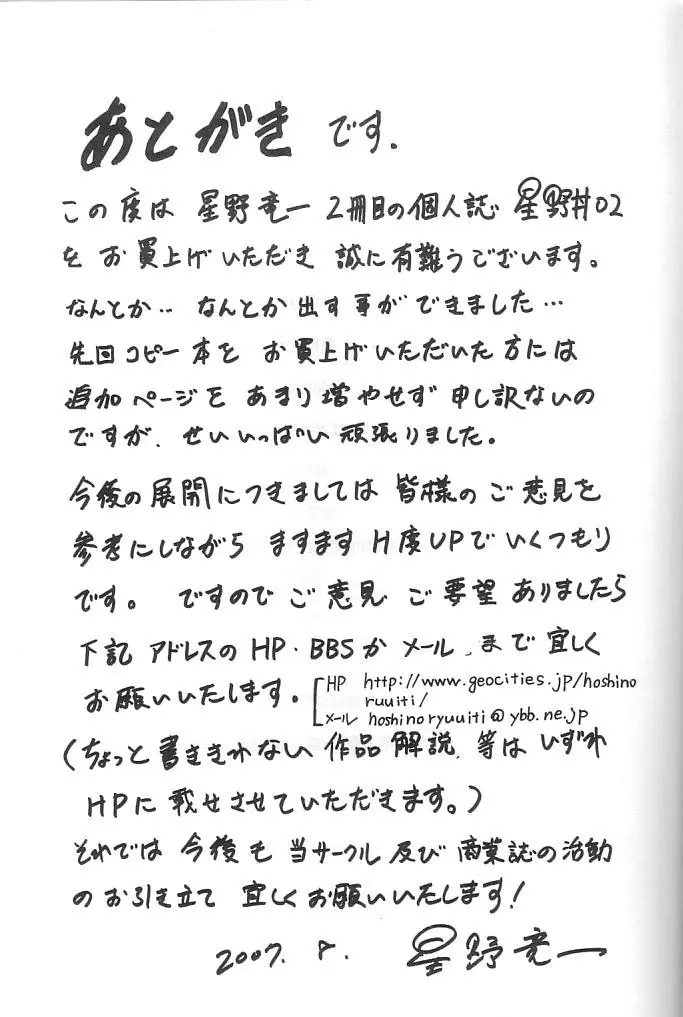 あとがき です.
この度は 星野竜一 2冊目の個人誌 星野丼02
を お買上げいただき 誠に有難うございます。
なんとか‥ なんとか出す事ができました…
先回コピー本を お買上げいただいた方には
追加ページを あまり増やせず 申し訳ないの
ですが、せいいっぱい頑張りました。
今後の展開につきましては 皆様のご意見を
参考にしながら ますます H度UPでいくつもり
です。 ですので ご意見 ご要望 ありましたら
下記 アドレスの HP・BBSか メール まで 宜しく
お願いいたします。
HP http://www.geocities.jp/hoshino
ruuiti/
メール hoshinoryuuiti@ybb.ne.jp
(ちょっと書ききれない 作品解説、等は いずれ
HPに 載せさせていただきます。)
それでは 今後も 当サークル 及び 商業誌の活動
の お引き立て 宜しくお願いいたします!
2007. 8. 星野竜一